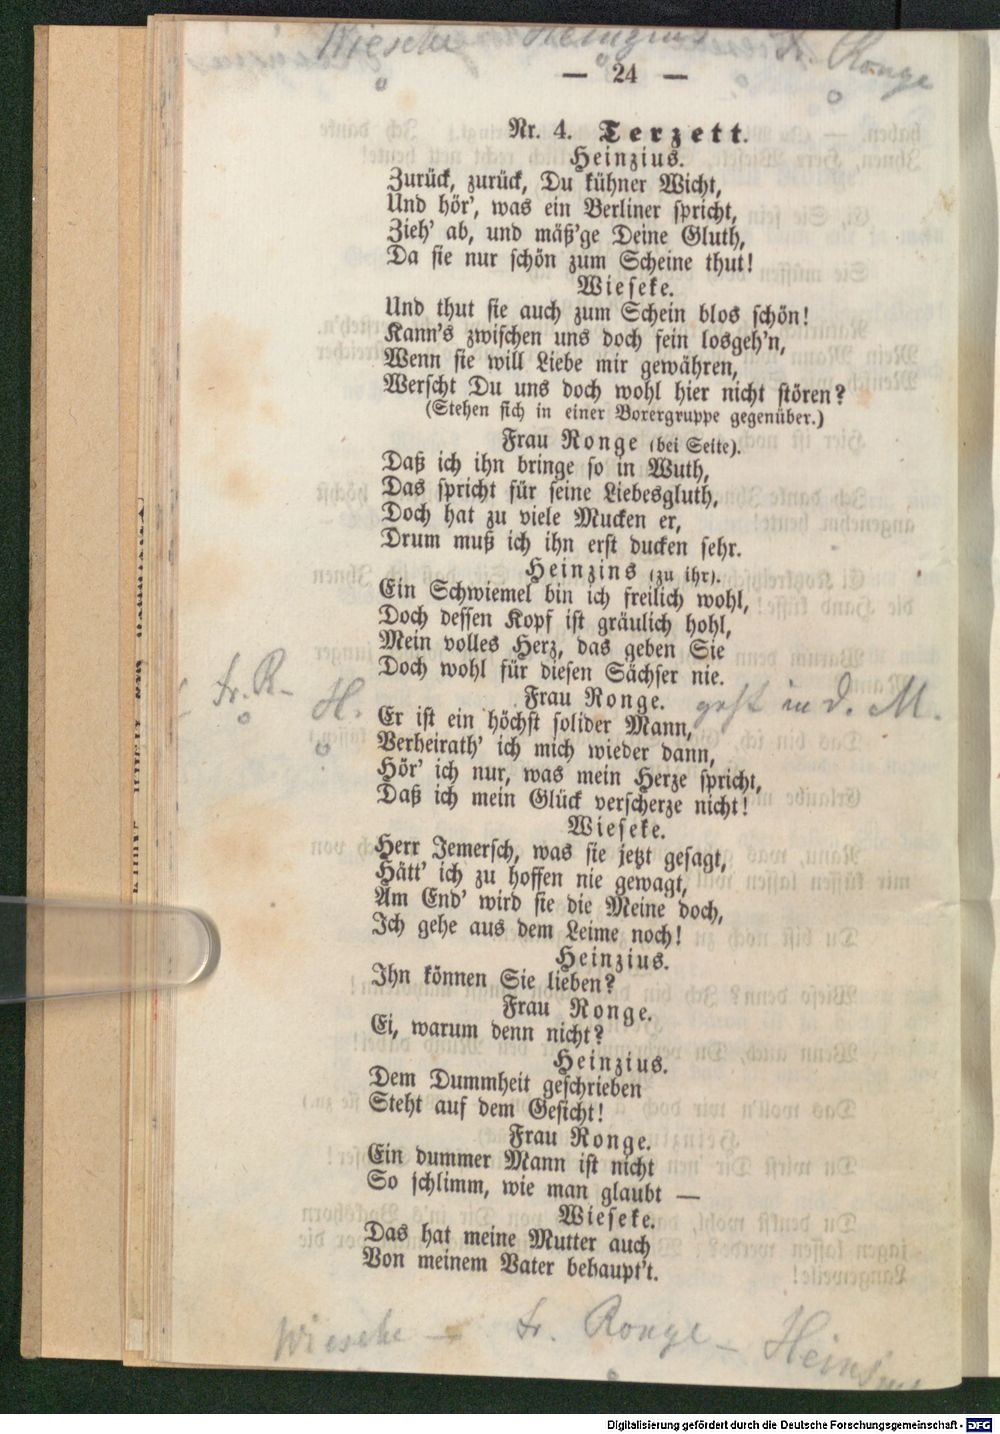 Wieseke Heinzius Fr. Ronge
— 24 —
Nr. 4. Terzett.
Heinzius.
Zurück, zurück, Du kühner Wicht,
Und hör', was ein Berliner spricht,
Zieh' ab, und mäß'ge Deine Gluth,
Da sie nur schön zum Scheine thut!
Wieseke.
Und thut sie auch zum Schein blos schön!
Kann's zwischen uns doch fein losgeh'n,
Wenn sie will Liebe mir gewähren,
Werscht Du uns doch wohl hier nicht stören?
(Stehen sich in einer Boxergruppe gegenüber.)
Frau Ronge (bei Seite).
Daß ich ihn bringe so in Wuth,
Das spricht für seine Liebesgluth,
Doch hat zu viele Mucken er,
Drum muß ich ihn erst ducken sehr.
Heinzins (zu ihr).
Ein Schwiemel bin ich freilich wohl,
Doch dessen Kopf ist gräulich hohl,
Mein volles Herz, das geben Sie
Doch wohl für diesen Sachser nie.
Fr. R- H. Frau Ronge. geht in d. M.
Er ist ein höchst solider Mann,
Verheirath' ich mich wieder dann,
Hör' ich nur, was mein Herze spricht,
Daß ich mein Glück verscherze nicht!
Wieseke.
Herr Jemersch, was sie jetzt gesagt,
Hätt' ich zu hoffen nie gewagt,
Am End' wird sie die Meine doch,
Ich gehe aus dem Leime noch!
Heinzius.
Ihn können Sie lieben?
Frau Ronge.
Ei, warum denn nicht?
Heinzius.
Dem Dummheit geschrieben
Steht auf dem Gesicht!
Frau Ronge.
Ein dummer Mann ist nicht
So schlimm, wie man glaubt —
Wieseke.
Das hat meine Mutter auch
Von meinem Vater behaupt't.
Wieseke — Fr. Ronge — Heinzius
Digitalisierung gefördert durch die Deutsche Forschungsgemeinschaft - DFG